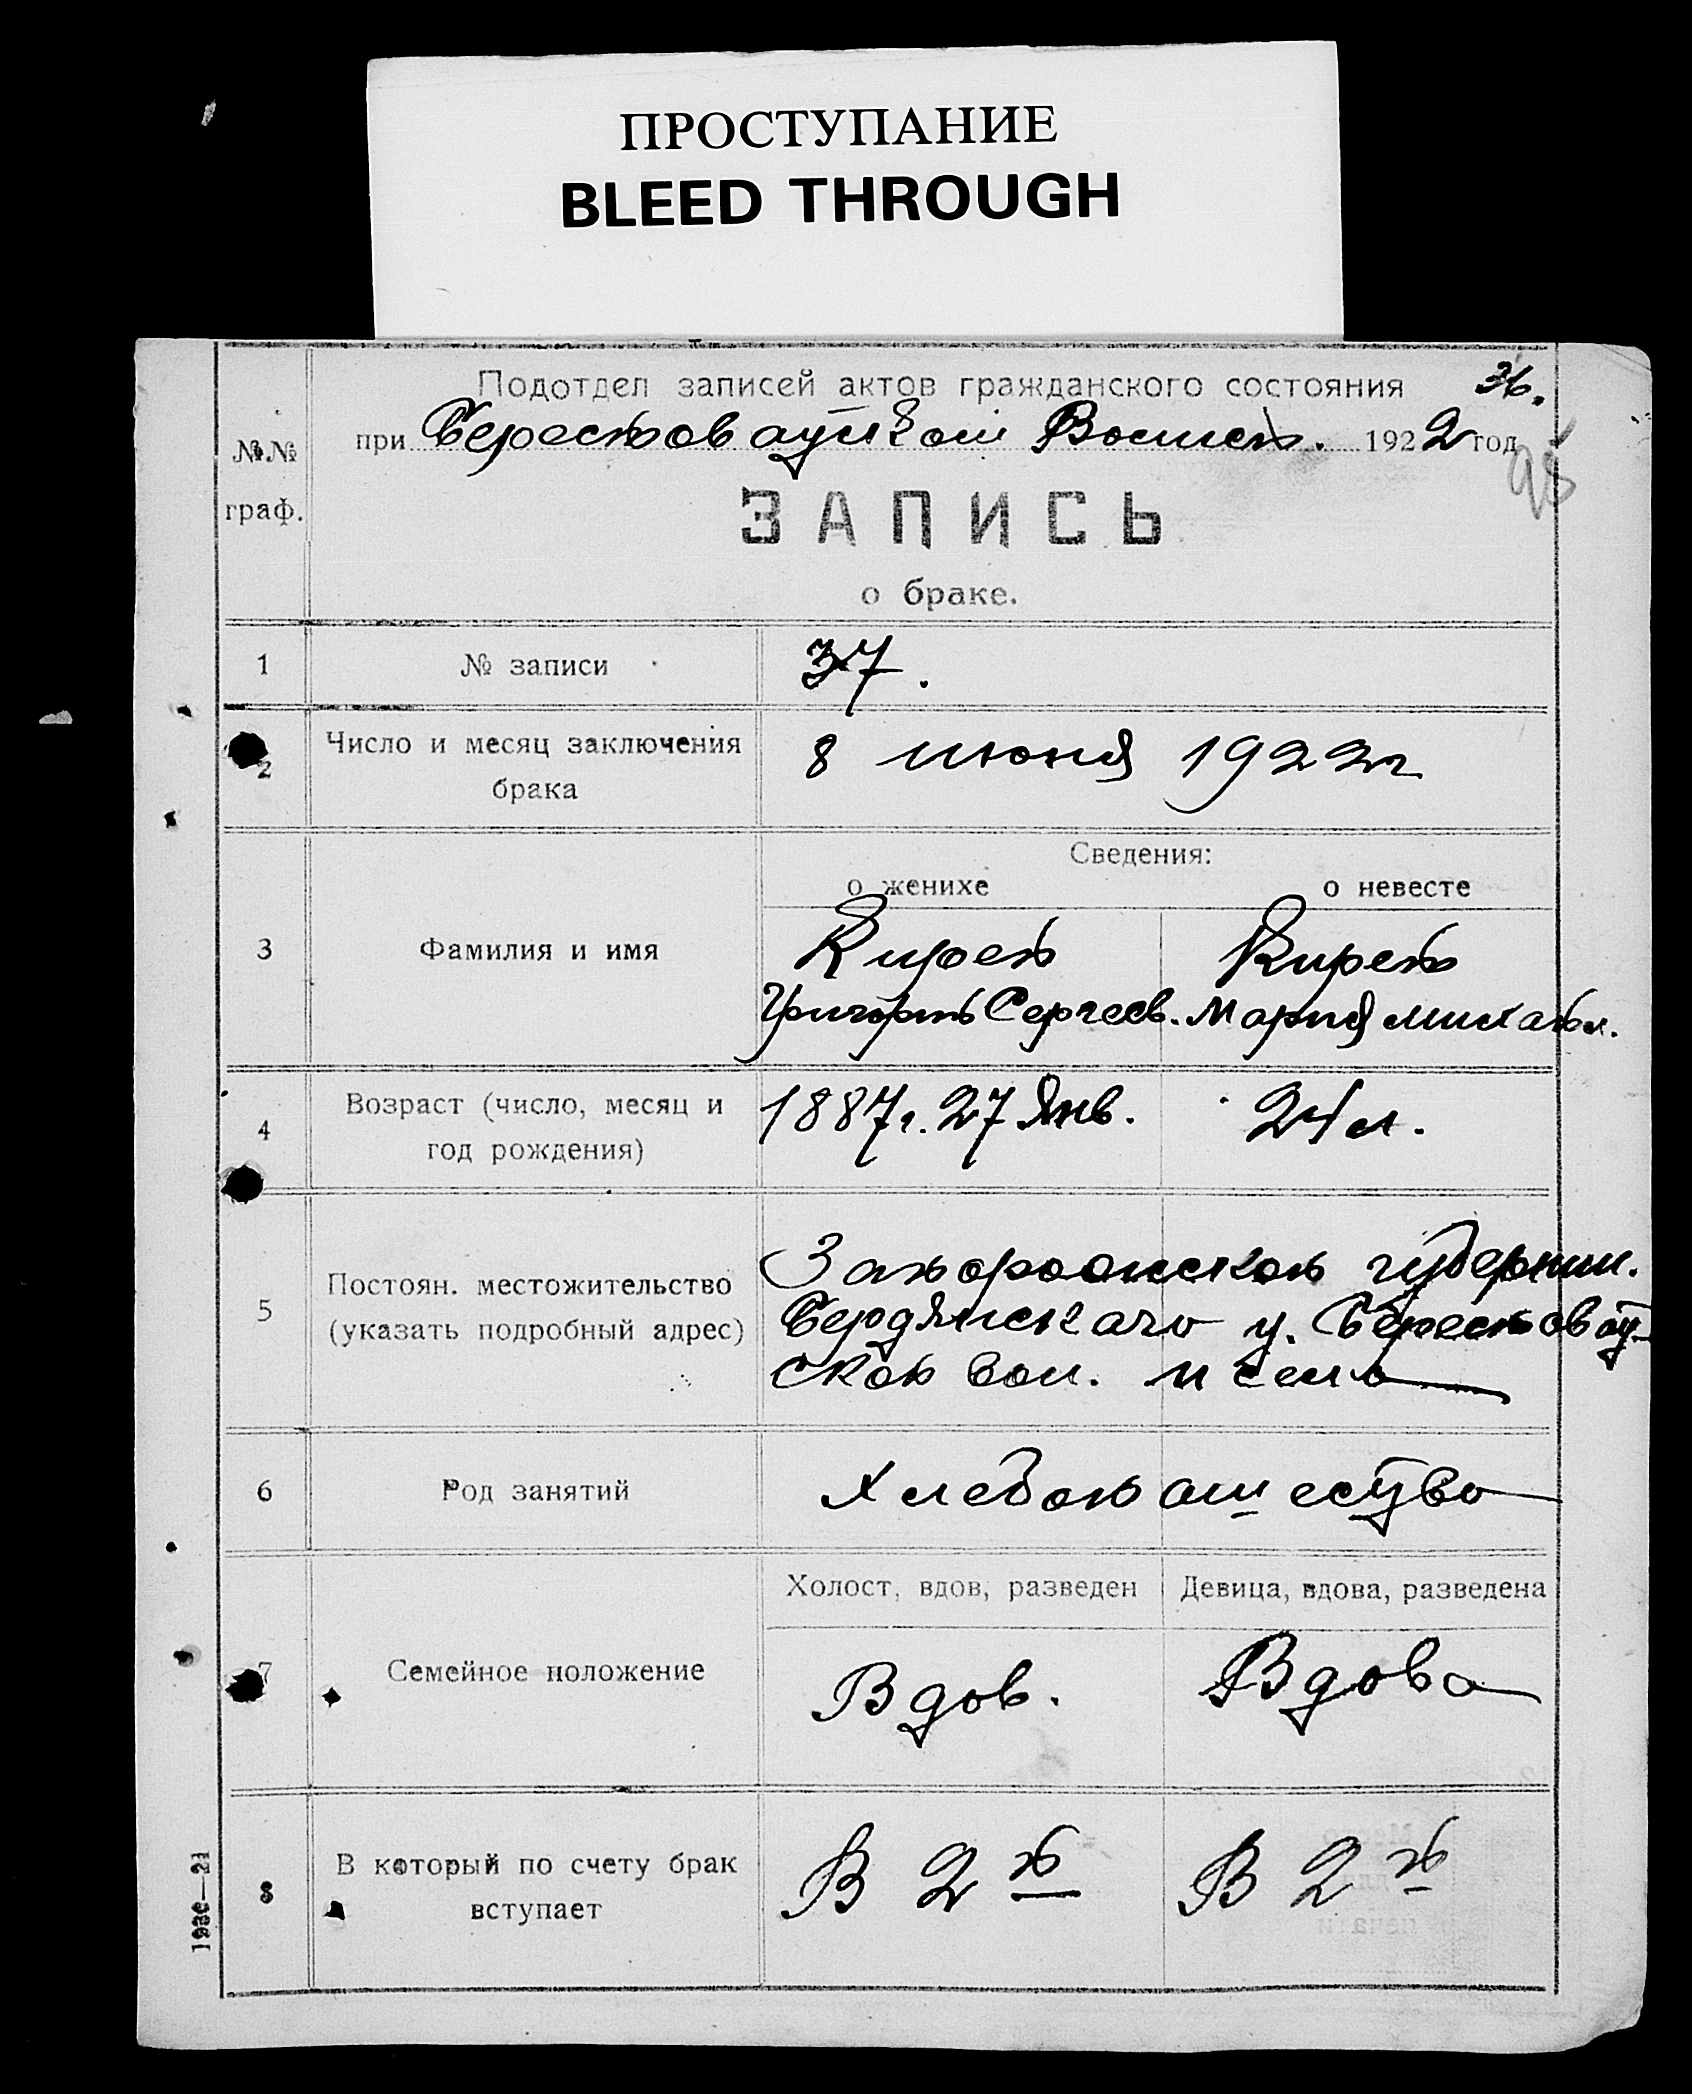 ПРОСТУПАНИЕ
BLEED THROUGH
Подотдел записей актов гражданского состояния 36.
при Берестовацком Волисп. 1922 год
95
№№
граф.
ЗАПИСЬ
о браке.
1 № записи 37.
2 Число и месяц заключения 8 июня 1922 г
брака
Сведения:
о женихе о невесте
3 Фамилия и имя Кирей Кирей
Григорій Сергеев. Мария Михайл.
4 Возраст (число, месяц и 1887 г. 27 Янв. 24 л.
год рождения)
Запорожской губернии.
5 Постоян. местожительство Бердянскаго у. Берестовац-
(указать подробный адрес) ской вол. и села
6 Род занятий Хлебопашество
Холост, вдов, разведен Девица, вдова, разведена
7 Семейное положение Вдов. Вдова
8 В который по счету брак В 2й В 2й
вступает
193с—21